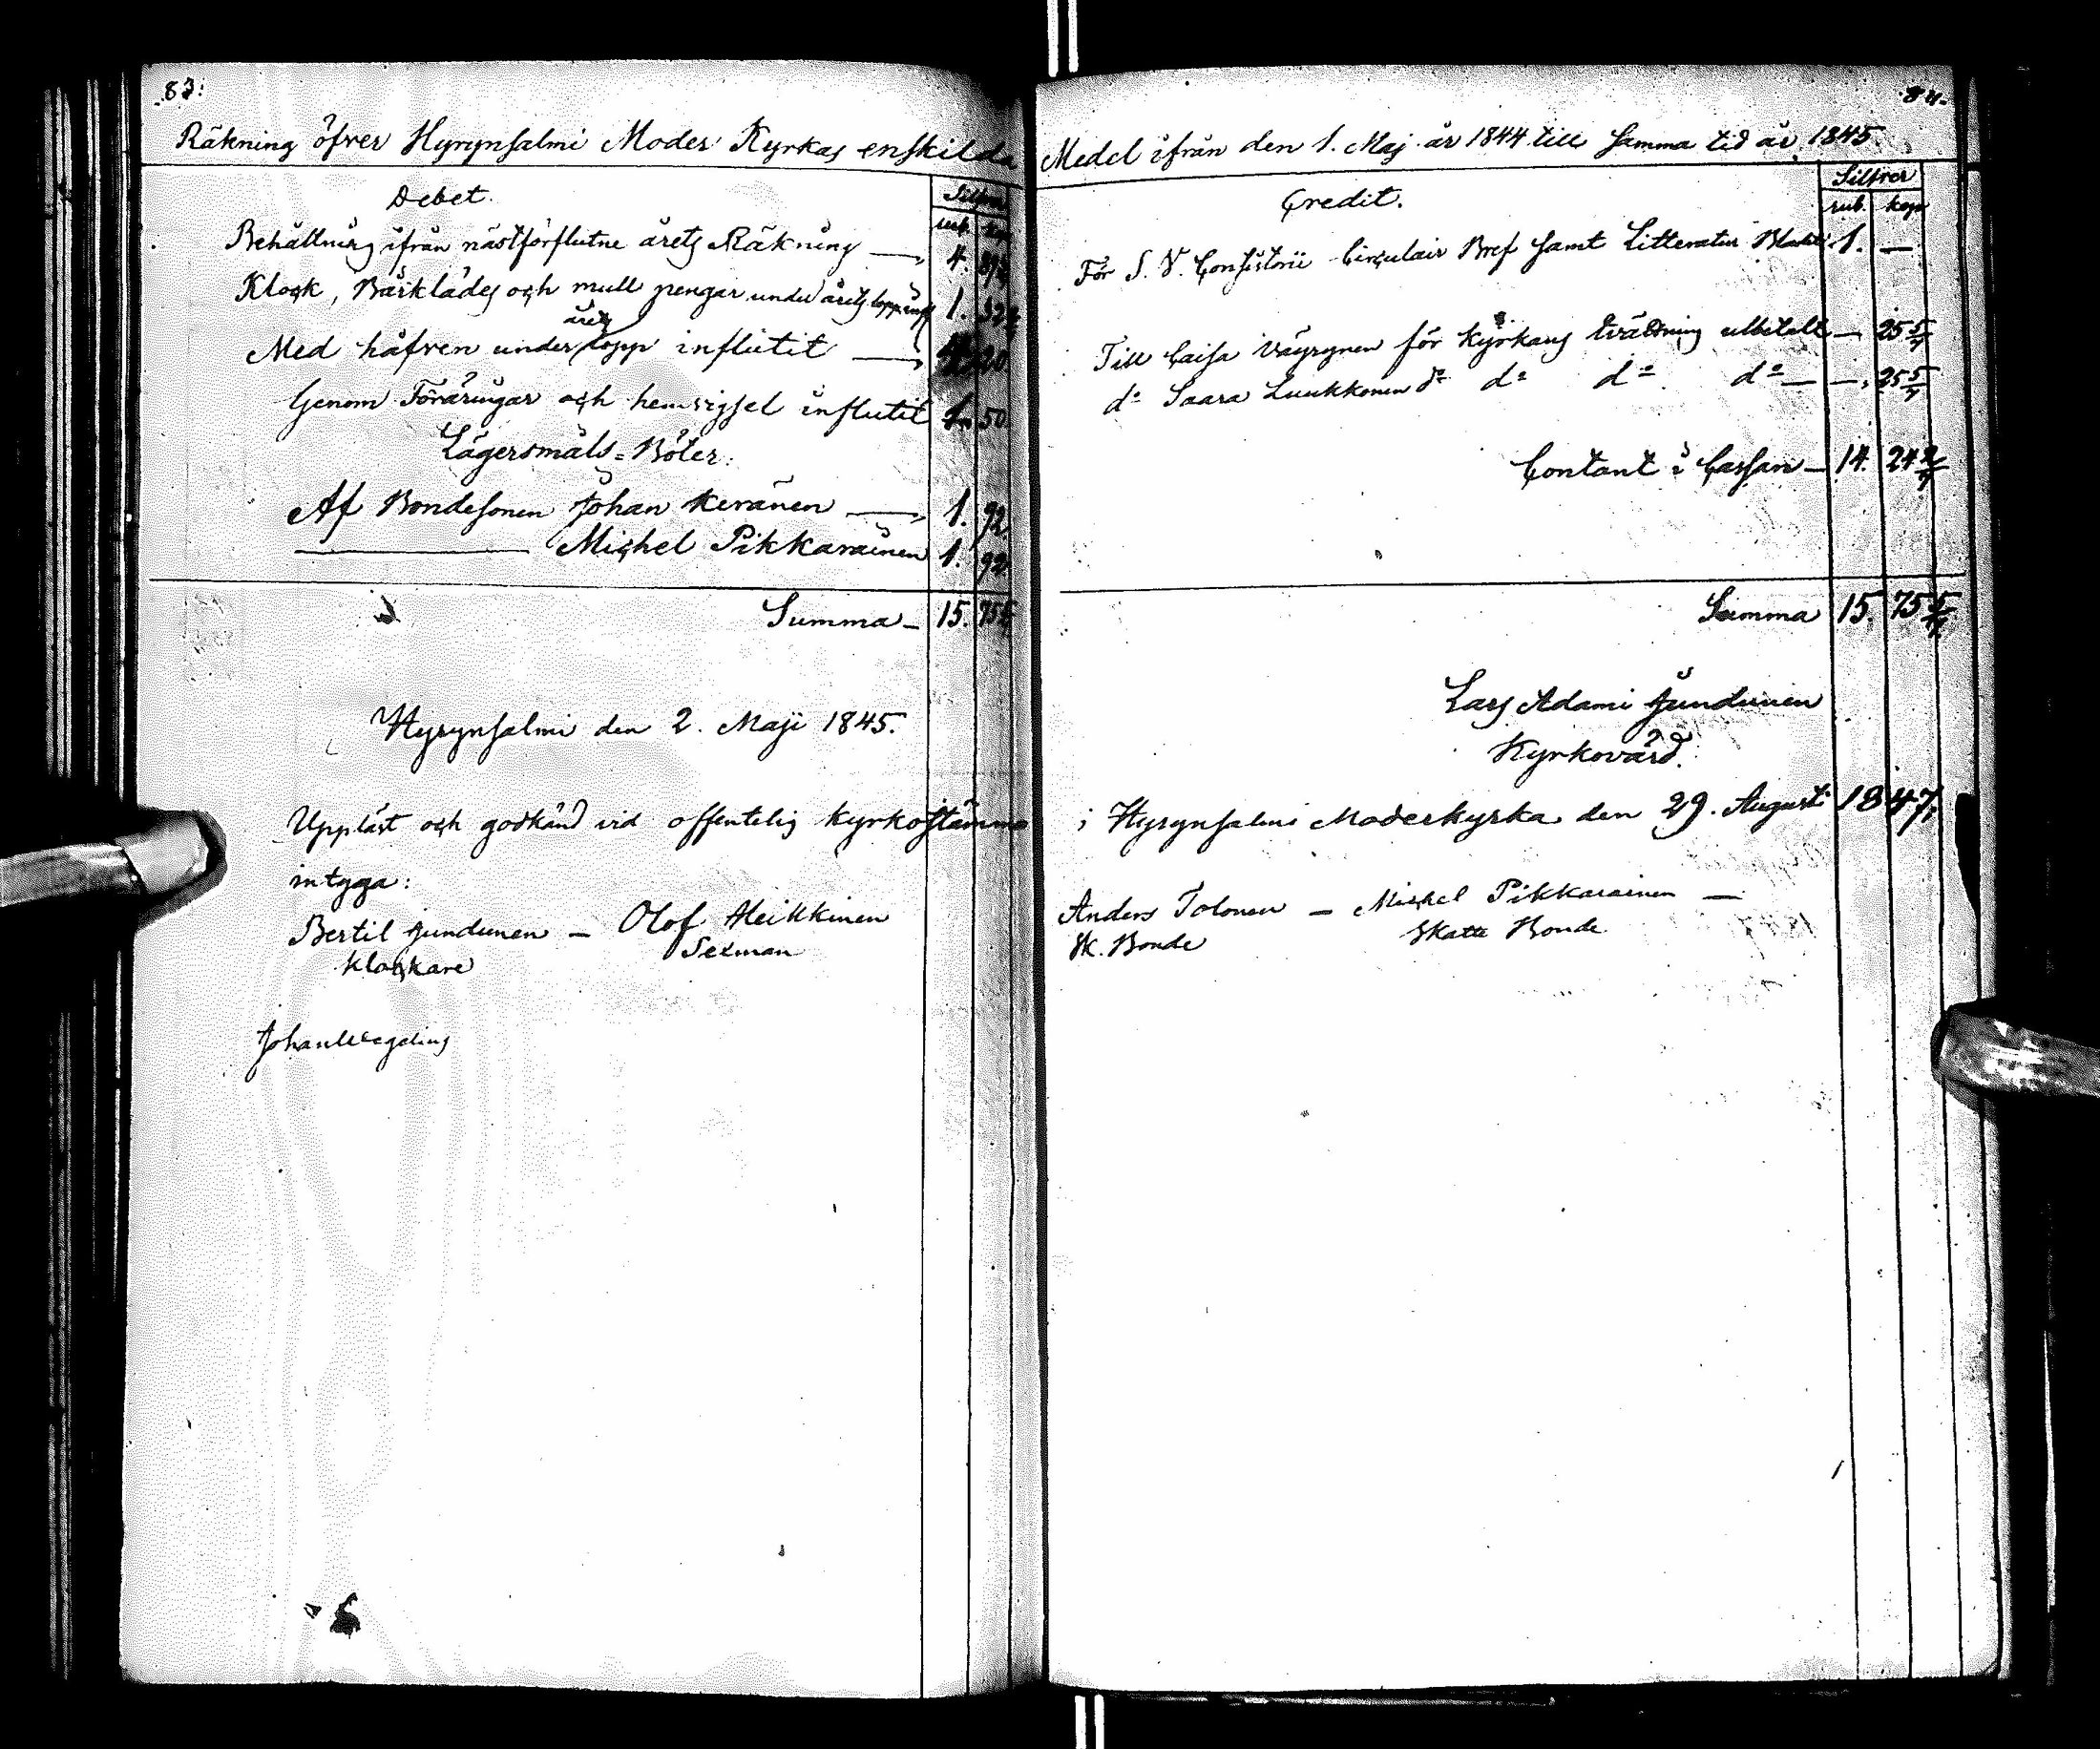 83:
Räkning öfver Hyrynsalmi Moder Kyrkas enskilda
Debet.
Silfver
rub. kop
Behållning ifrån nästförflutne årets Räkning — 4.
Klock, Bårklädes och mull pengar under årets lopp infl 1.
Med håfven under årets lopp influtit — 20.
Genom Föräringar och hemvigsel influtit 1. 50.
Lägersmåls-Böter:
Af Bondesonen Johan Keränen — 1. 92.
— Michel Pikkarainen 1. 92.
Summa — 15. 75 5/7
Hyrynsalmi den 2. Maji 1845.
Uppläst och godkänd vid offentelig kyrkostämma
intyga:
Bertil Jundunen — Olof Heikkinen
Klockare Sexman
Johan Wegelius
84.
Medel ifrån den 1. Maj år 1844 till samma tid år 1845.
Credit.
Silfver
rub. kop
För S. V. Consistorii Circulair Bref samt Litteratur Blad 1. —
Till Caisa Väyrynen för Kyrkans tvättning utbetalt — 25 5/7
do Saara Luukkonen do do do do — —. 25 5/7
Contant i Cassan — 14. 24 2/7
Summa 15. 75 5/7
Lars Adami Jundunen
Kyrkovärd.
i Hyrynsalmi Moderkyrka den 29. Augusti 1847,
Anders Tolonen — Michel Pikkarainen —
Sk. Bonde Skatte Bonde